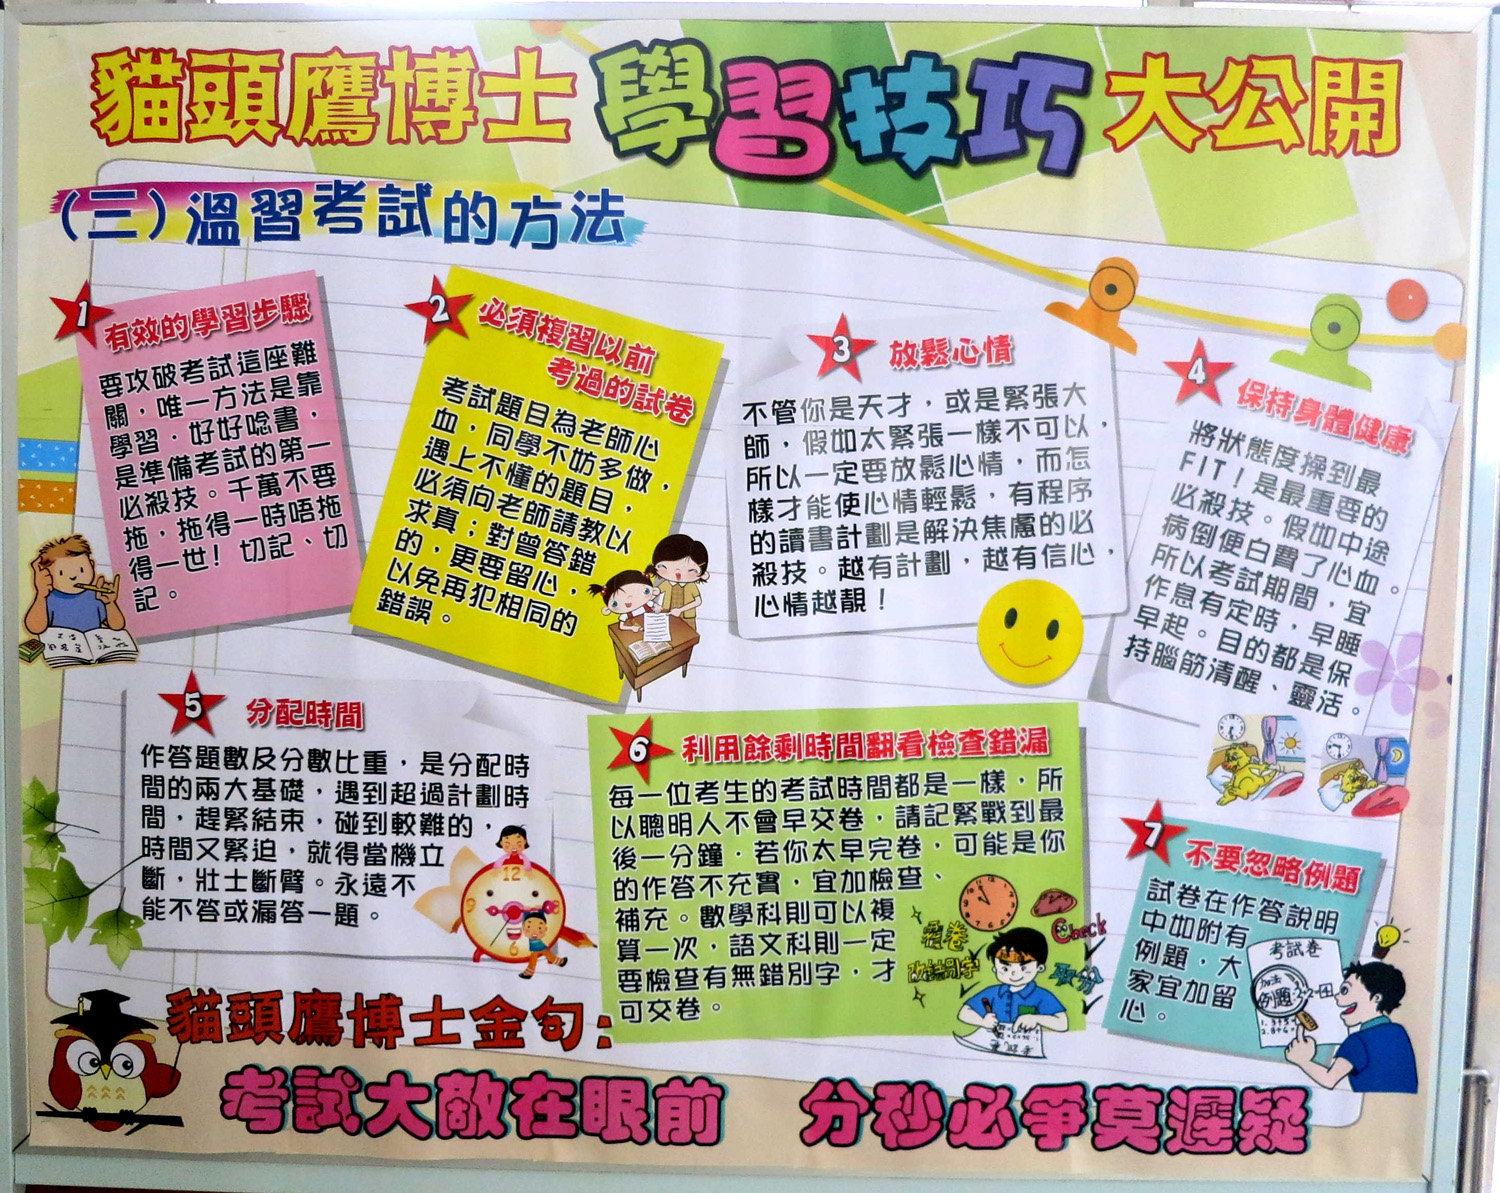 貓頭鷹博士學習技巧大公開
（三）溫習考試的方法
1 有效的學習步驟
要攻破考試這座難
關，唯一方法是靠
學習．好好唸書，
是準備考試的第一
必殺技。千萬不要
拖，拖得一時唔拖
得一世！切記、切
記。
2 必須複習以前
考過的試卷
考試題目為老師心
血，同學不妨多做，
遇上不懂的題目，
必須向老師請教以
求真；對曾答錯
的，更要留心，
以免再犯相同的
錯誤。
3 放鬆心情
不管你是天才，或是緊張大
師，假如太緊張一樣不可以，
所以一定要放鬆心情，而怎
樣才能使心情輕鬆，有程序
的讀書計劃是解決焦慮的必
殺技。越有計劃，越有信心，
心情越靚！
4 保持身體健康
將狀態度操到最
FIT！是最重要的
必殺技。假如中途
病倒便白費了心血。
所以考試期間，宜
作息有定時，早睡
早起。目的都是保
持腦筋清醒、靈活。
5 分配時間
作答題數及分數比重，是分配時
間的兩大基礎，遇到超過計劃時
間，趕緊結束，碰到較難的，
時間又緊迫，就得當機立
斷，壯士斷臂。永遠不
能不答或漏答一題。
12
9
6
6 利用餘剩時間翻看檢查錯漏
每一位考生的考試時間都是一樣，所
以聰明人不會早交卷，請記緊戰到最
後一分鐘．若你太早完卷，可能是你
的作答不充實，宜加檢查、
補充。數學科則可以複
算一次，語文科則一定
要檢查有無錯別字，才
可交卷。
Check
取分
7 不要忽略例題
試卷在作答說明
中如附有
例題，大
家宜加留
心。
考試卷
例題
貓頭鷹博士金句：
考試大敵在眼前 分秒必爭莫遲疑